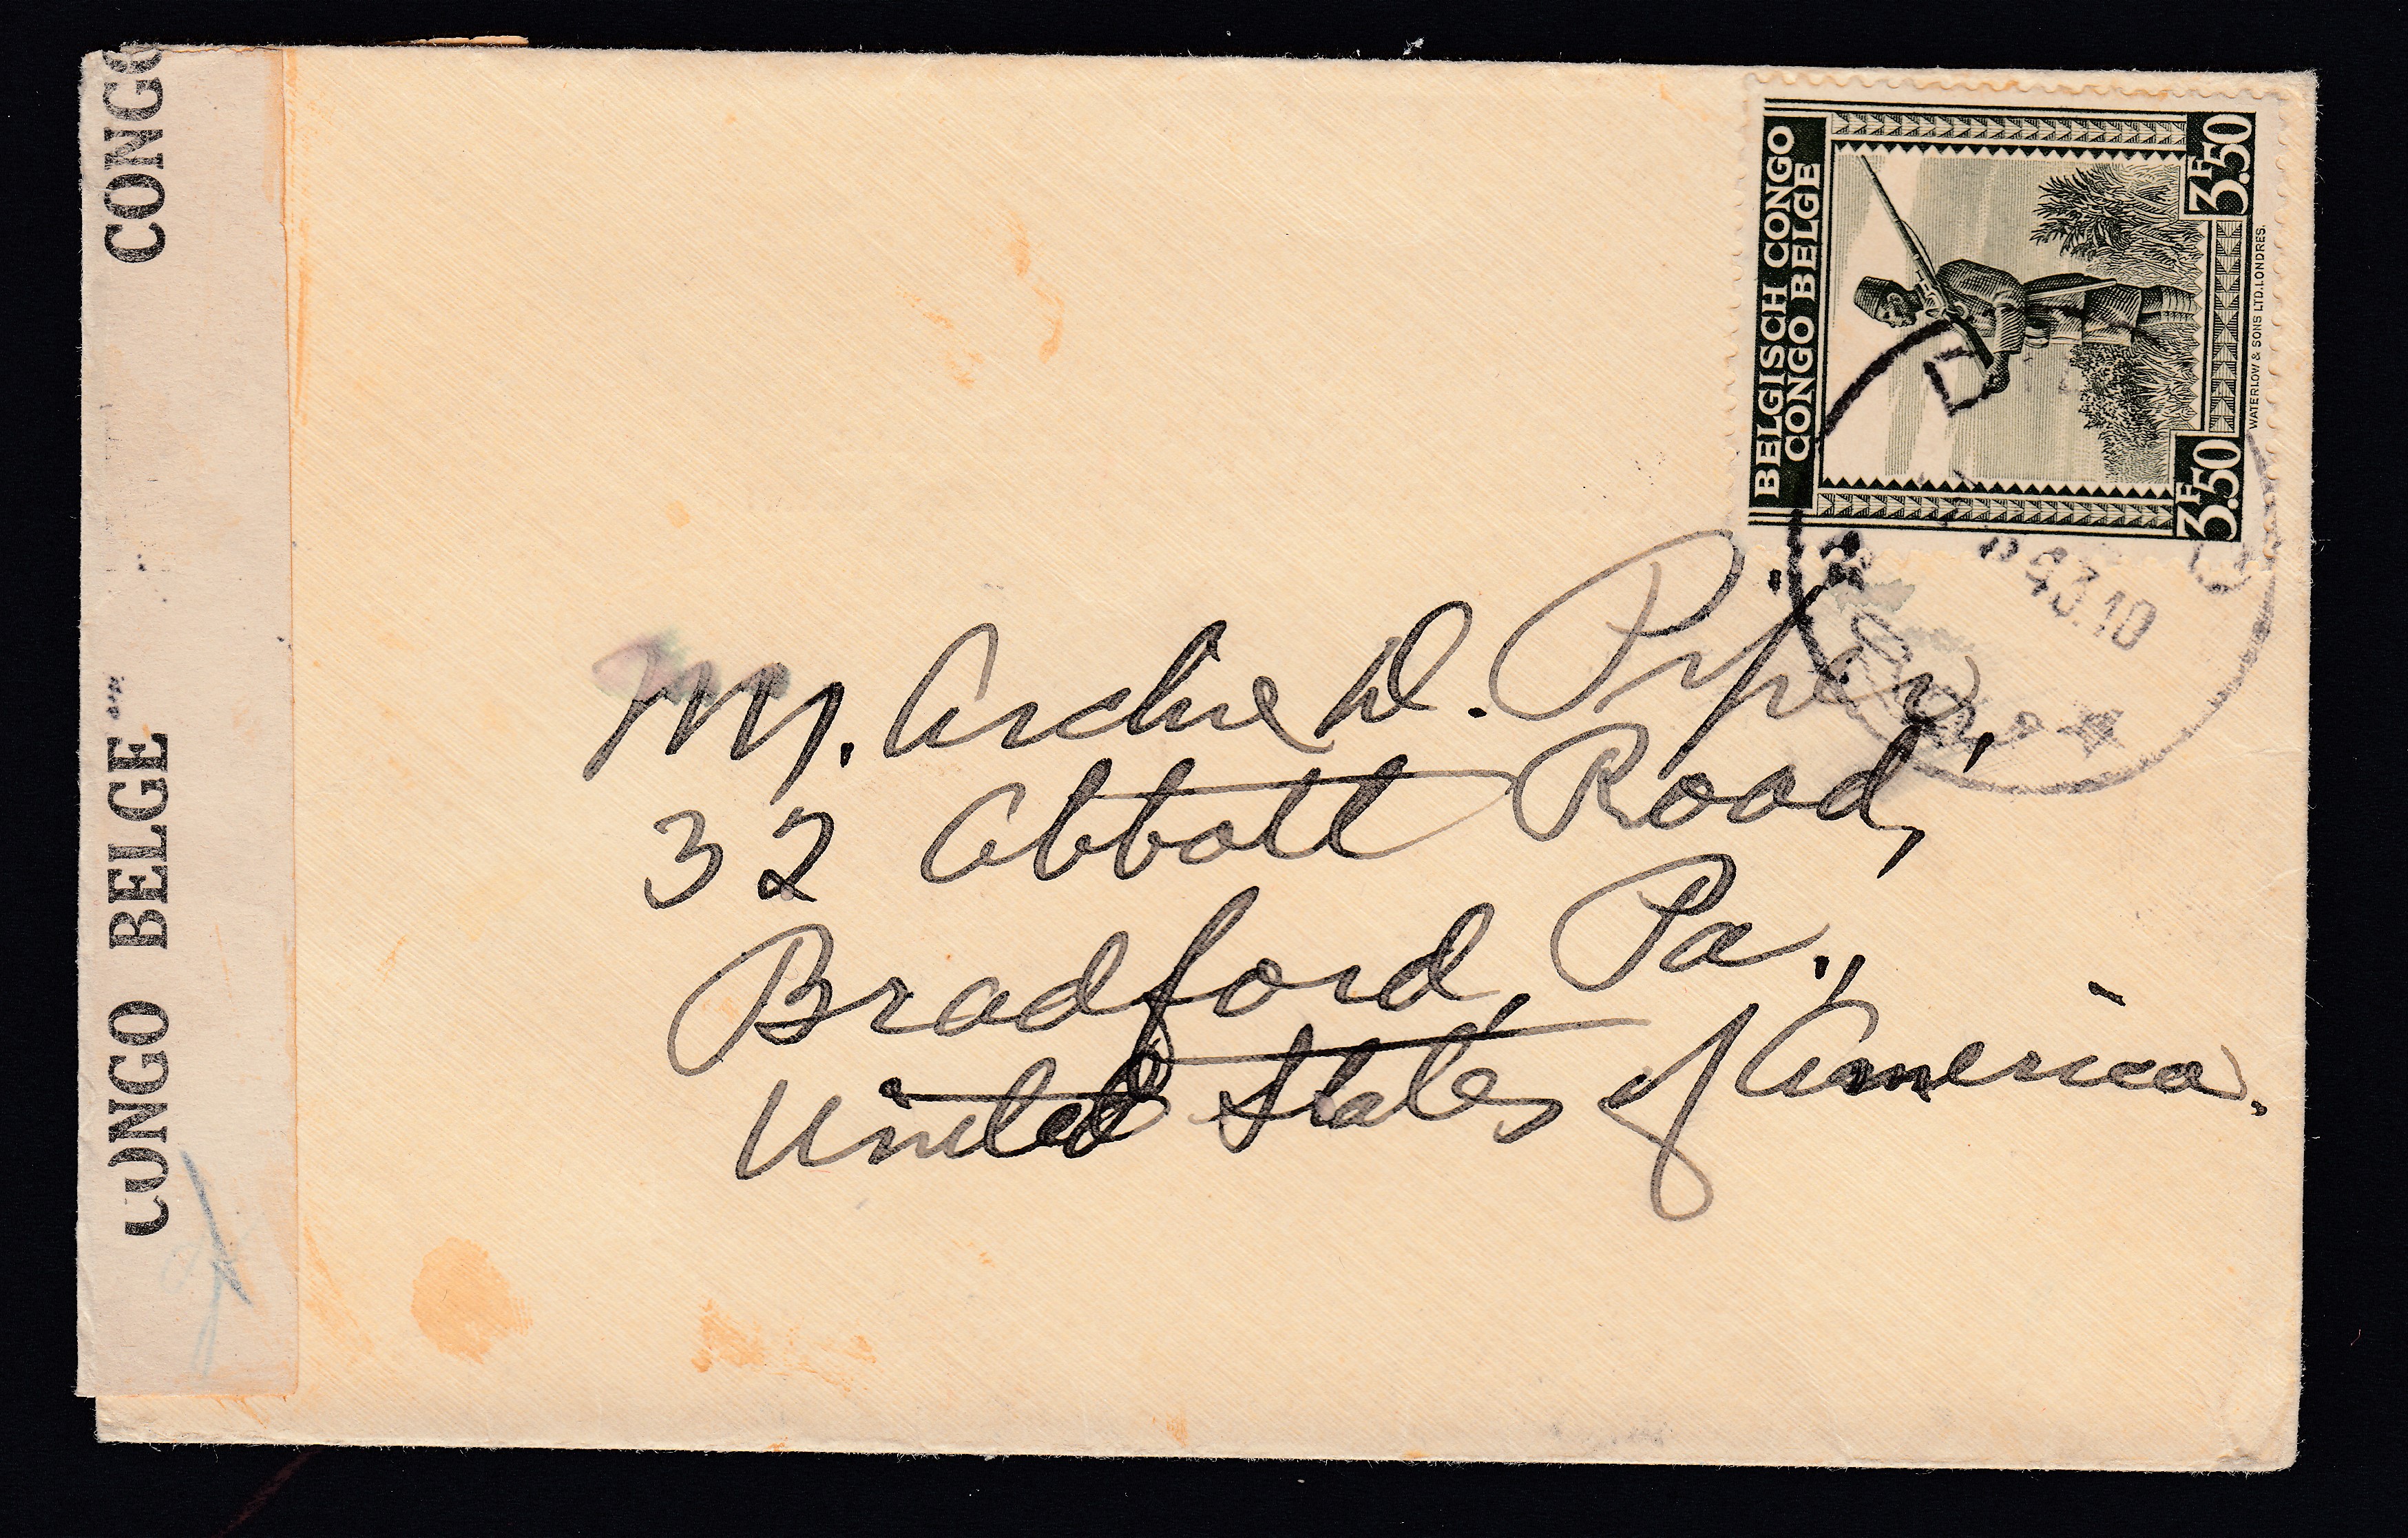 CONGO BELGE
CONGO
BELGISCH CONGO
CONGO BELGE
3F.50
3F.50
WATERLOW & SONS LTD. LONDRES.
43.10
Mr. Archie D. Piper,
32 Abbott Road,
Bradford, Pa.,
United States of America.